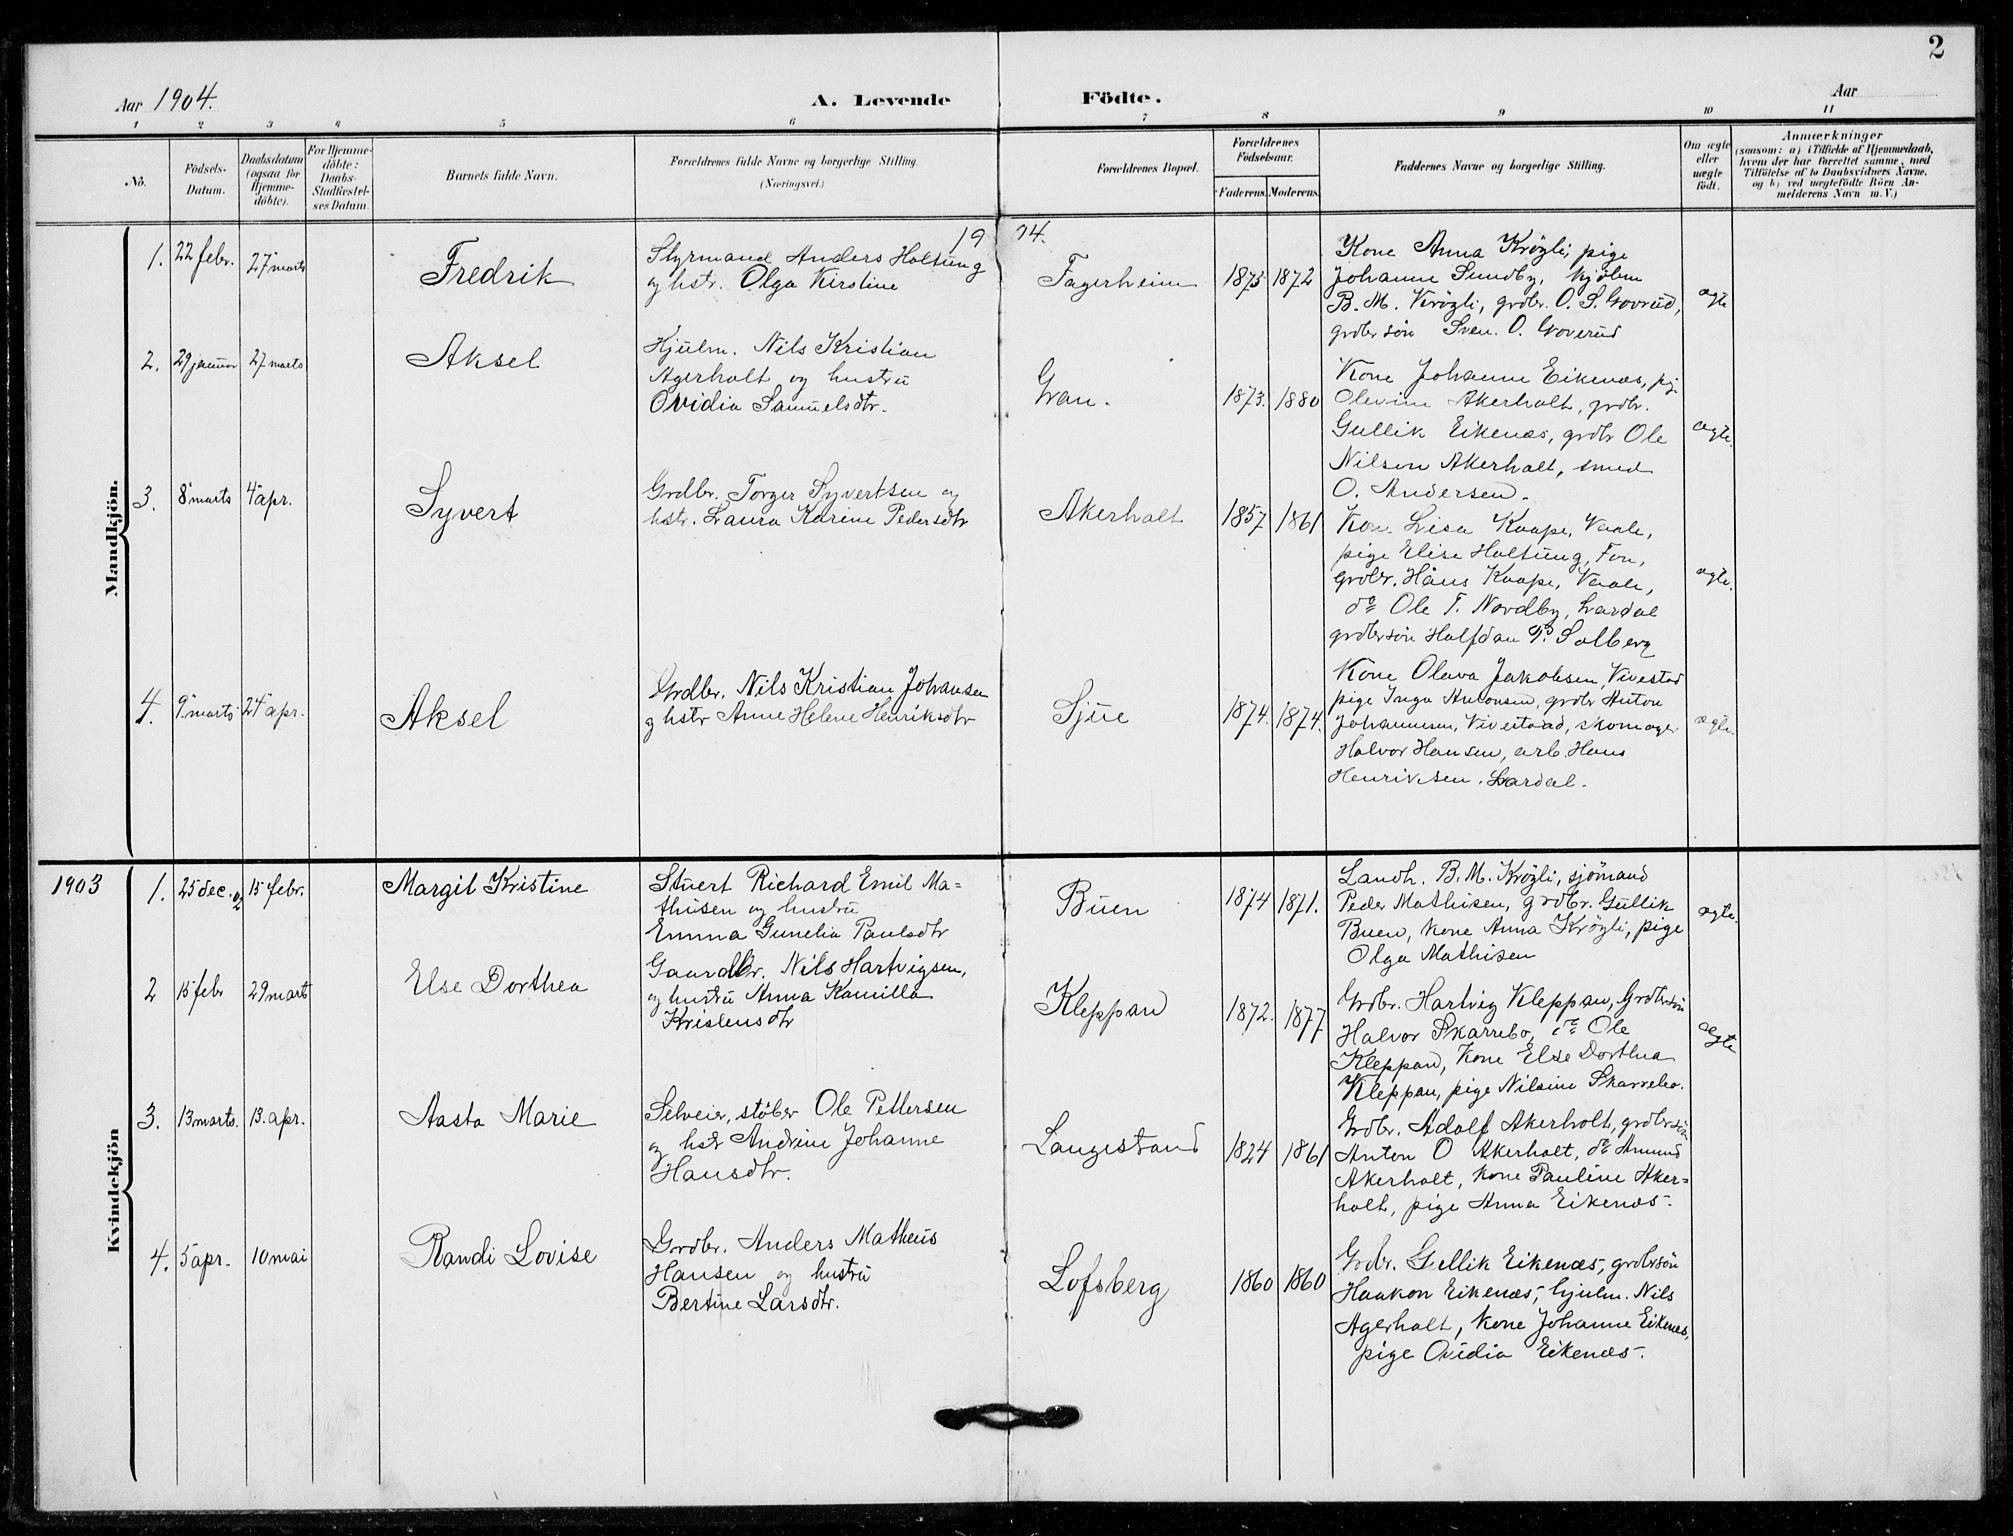 2
Aar 1904.
A. Levende Födte.
Aar
1 2 3 4 5 6 7 8 9 10 11
No.
Födsels-
Datum.
Daabsdatum
(ogsaa for
Hjemme-
döbte).
For Hjemme-
döbte:
Daabs-
Stadfæstel-
ses Datum.
Barnets fulde Navn.
Forældrenes fulde Navne og borgerlige Stilling.
(Næringsvei.)
Forældrenes Bopæl.
Forældrenes
Födselsaar.
Faderens. Moderens.
Faddernes Navne og borgerlige Stilling.
Om ægte
eller
uægte
födt.
Anmærkninger
(saasom: a) i Tilfælde af Hjemmedaab,
hvem der har forrettet samme, med
Tilföielse af to Daabsvidners Navne,
og b) ved uægtefödte Börn An-
melderens Navn m. V.)
Mandkjön.
19 04.
1. 22 febr. 27 marts
Fredrik
Styrmand Anders Holtung
og hstr. Olga Kirstine
Fagerheim
1873 1872
Kone Anna Krøgli, pige
Johanne Sundby, kjøbm
B. M. Krøgli, grdbr. O. S. Goverud,
grdbr søn Sven. O. Goverud
ægte
2. 29 januar 27 marts
Aksel
Hjulm. Nils Kristian
Agerholt og hustru
Ovidia Samuelsdtr.
Gran.
1873. 1880
Kone Johanne Eikenæs, pig
Olevine Akerholt, grdbr.
Gullik Eikenæs, grdbr Ole
Nilsen Akerholt, smed
O. Andersen.
ægte.
3. 8 marts 4 apr.
Syvert
Grdbr. Torger Syvertsen og
hstr. Laura Karine Pedersdtr
Akerholt
1857 1861
Kone Lisa Kaape, Vaale,
pige Elise Holtung, Fon,
grdbr. Hans Kaape, Vaale,
do Ole T. Nordby, Lardal
grdbrsøn Halfdan P. Solberg
ægte.
4. 9 marts 24 apr.
Aksel
Grdbr. Nils Kristian Johansen
og hstr Anne Helene Henriksdtr
Sjue
1874. 1874.
Kone Olava Jakobsen, Vivestad
pige Inga Antonsen, grdbr Anton
Johannesen, Vivestaad, skomager
Halvor Hansen, arb. Hans
Henriksen. Lardal.
ægte.
Kvindekjön
1903
1. 25 dec. 02 15 febr.
Margit Kristine
Stuert Richard Emil Ma=
thisen og hustru
Emma Gunelia Paulsdtr
Buen
1874 1871.
Landh. B. M. Krøgli, sjømand
Peder Mathisen, grdbr. Gullik
Buen, kone Anna Krøgli, pige
Olga Mathisen
ægte.
2 15 febr 29 marts
Else Dorthea
Gaardbr. Nils Hartvigsen,
og hustru Anna Kamilla
Kristensdtr
Kleppan
1872. 1877
Grdbr. Hartvig Kleppan, Grdbrsøn
Halvor Skarrebo, do Ole
Kleppan, Kone Else Dorthea
Kleppan, pige Nilsine Skarrebo.
ægte
3. 13 marts. 13. apr.
Aasta Marie
Selveier, støber Ole Pettersen
og hstr Andrine Johanne
Hansdtr.
Langestrand
1824 1861
Grdbr. Adolf Akerholt, grdbrsøn
Anton O Akerholt, do Amund
Akerholt, kone Pauline Aker=
holt, pige Anna Eikenæs.
4. 5 apr. 10 mai
Randi Lovise
Grdbr. Anders Matheus
Hansen og hustru
Bertine Larsdtr.
Lofsberg
1860 1860
Grdbr. Gullik Eikenæs, grdbrsøn
Haakon Eikenæs, hjulm. Nils
Agerholt, kone Johanne Eikenæs,
pige Ovidia Eikenæs.